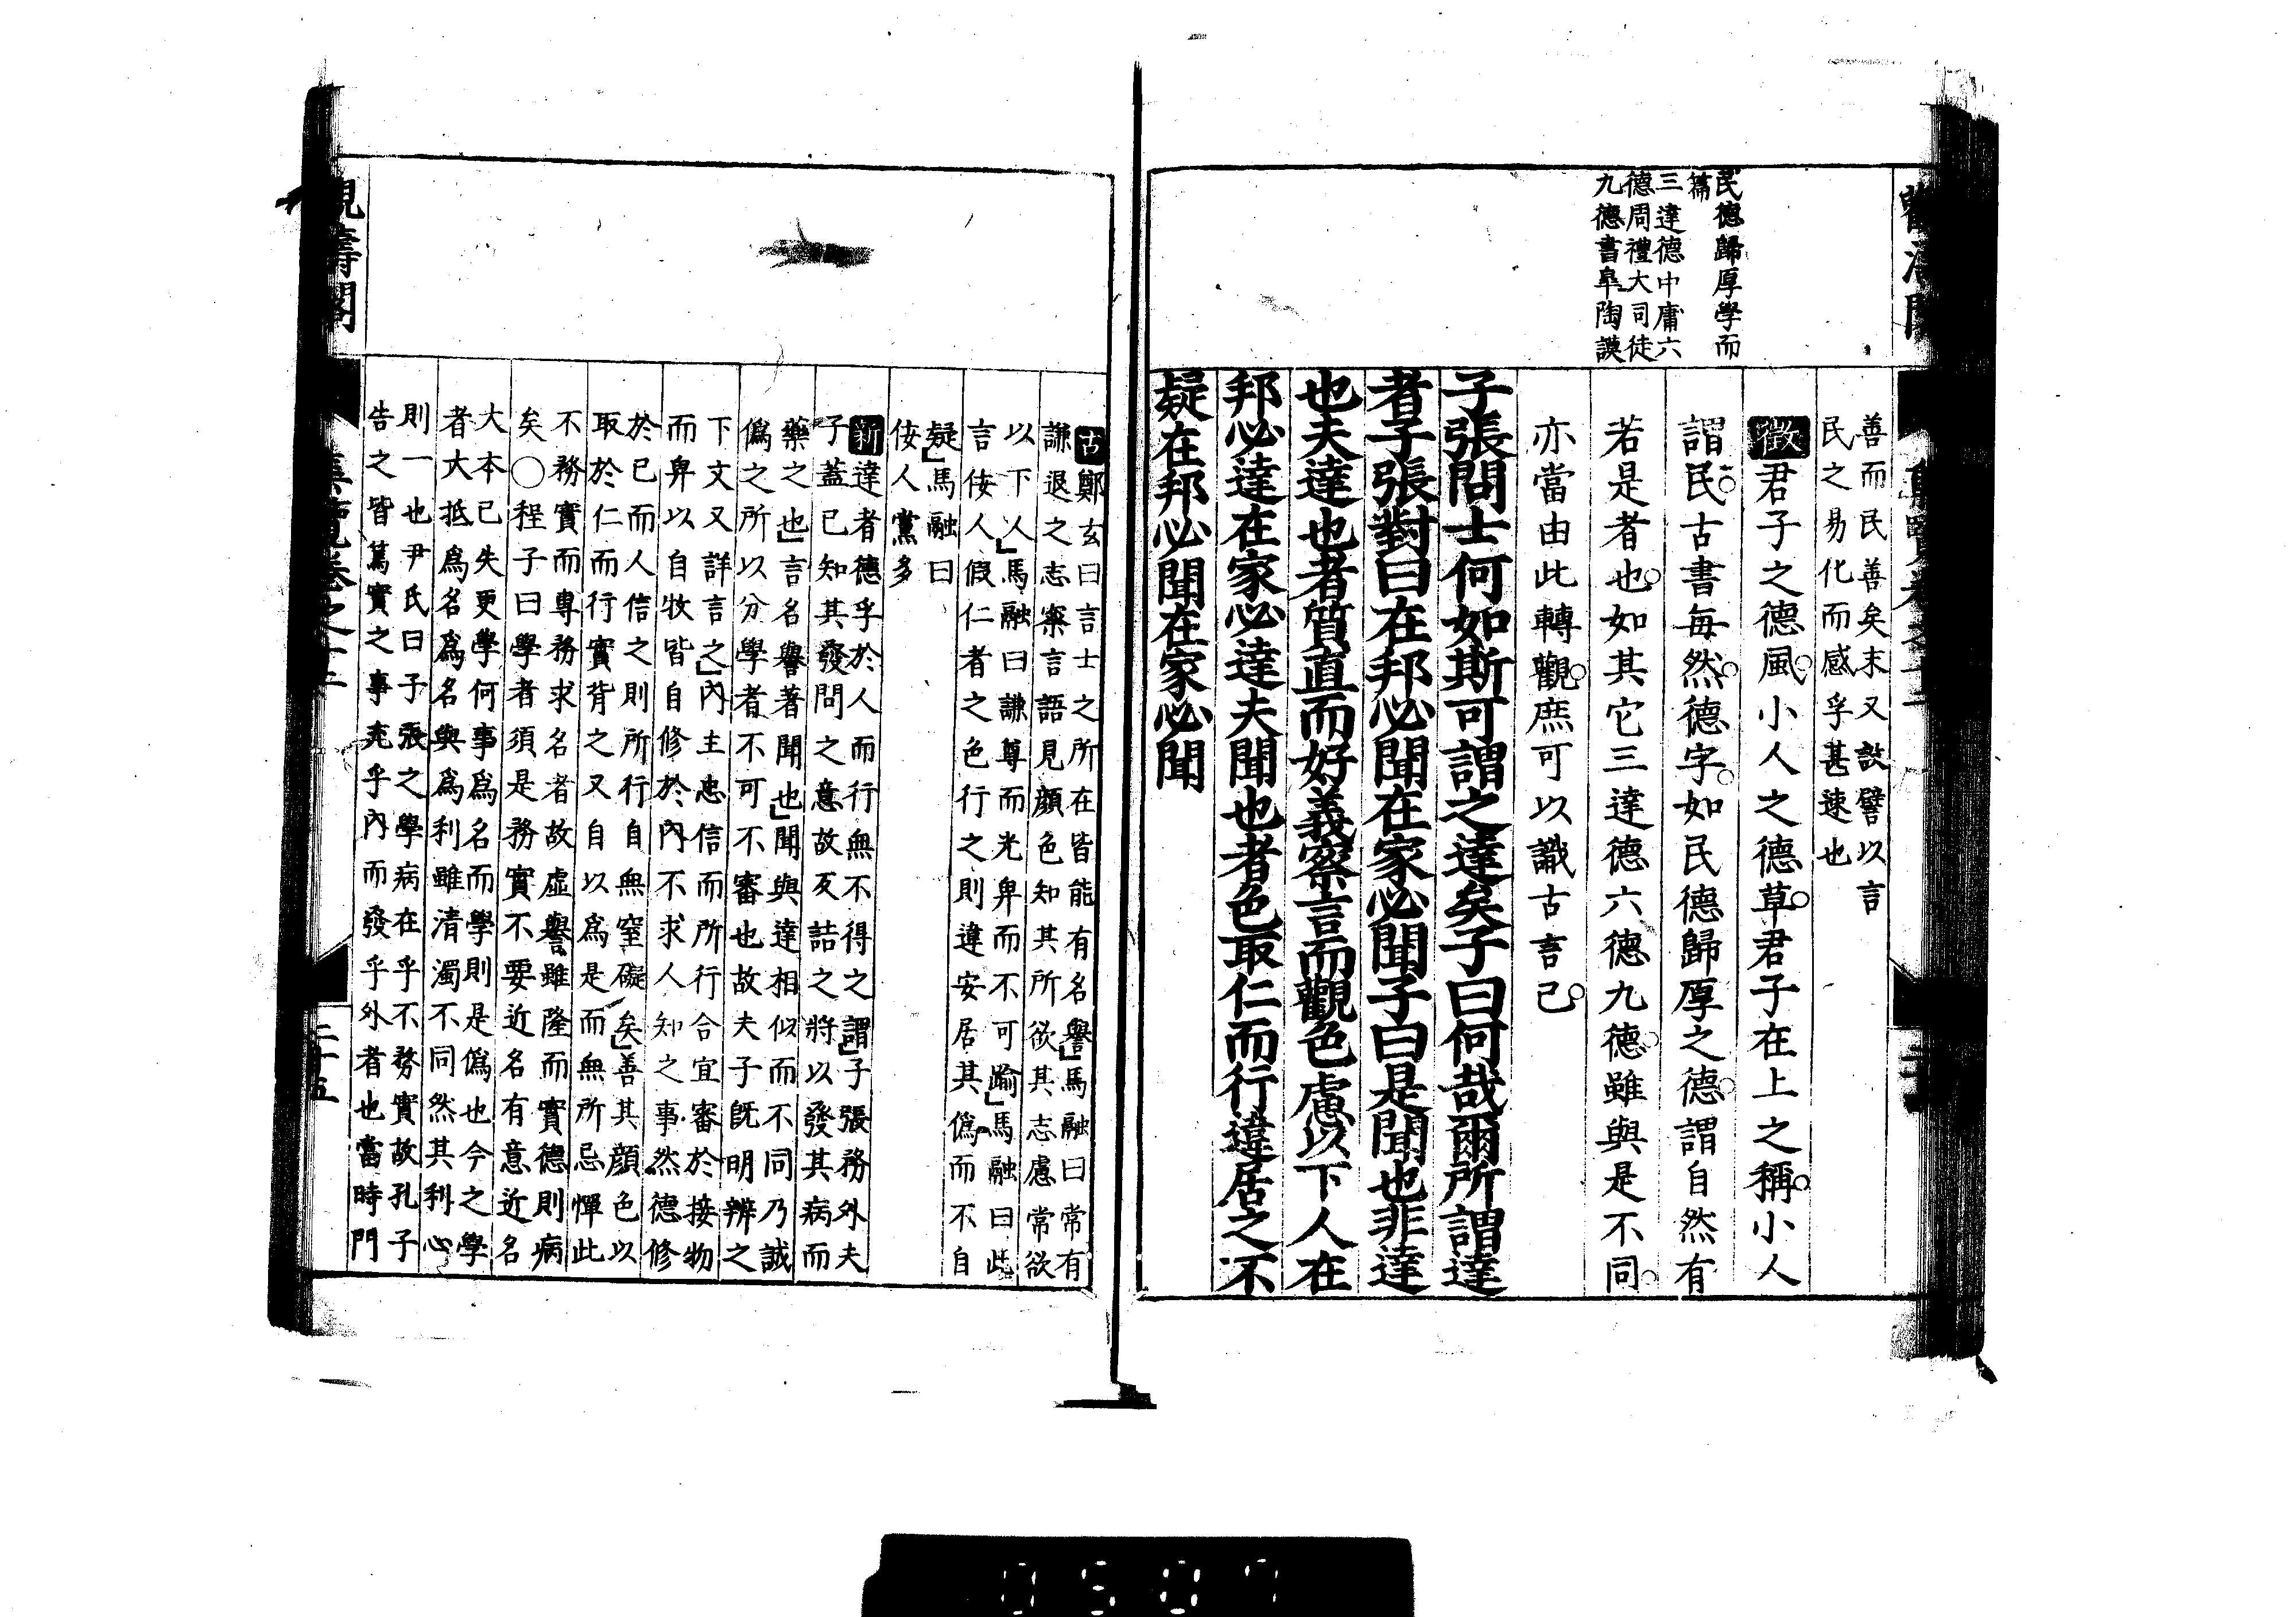 民德歸厚學而
篇
三達德中庸六
德周禮大司徒
九德書皐陶謨
善而民善矣末又設譬以言
民之易化而感孚甚速也
徵君子之德風小人之德草君子在上之稱小人
謂民古書每然德字如民德歸厚之德謂自然有
若是者也如其它三達德六德九德雖與是不同
亦當由此轉觀庶可以識古言已
子張問士何如斯可謂之達矣子曰何哉爾所謂達
者子張對曰在邦必聞在家必聞子曰是聞也非達
也夫達也者質直而好義察言而觀色慮以下人在
邦必達在家必達夫聞也者色取仁而行違居之不
疑在邦必聞在家必聞
古鄭玄曰言士之所在皆能有名譽馬融曰常有
謙退之志察言語見顏色知其所欲其志慮常欲
以下人馬融曰謙尊而光卑而不可踰馬融曰此
言佞人假仁者之色行之則違安居其僞而不自
疑馬融曰
佞人黨多
新達者德孚於人而行無不得之謂子張務外夫
子蓋已知其發問之意故反詰之將以發其病而
藥之也言名譽著聞也聞與達相似而不同乃誠
僞之所以分學者不可不審也故夫子旣明辨之
下文又詳言之內主忠信而所行合宜審於接物
而卑以自牧皆自修於內不求人知之事然德修
於已而人信之則所行自無窒礙矣善其顏色以
取於仁而行實背之又自以爲是而無所忌憚此
不務實而專務求名者故虛譽雖隆而實德則病
矣○程子曰學者須是務實不要近名有意近名
大本已失更學何事爲名而學則是僞也今之學
者大抵爲名爲名與爲利雖清濁不同然其利心
則一也尹氏曰子張之學病在乎不務實故孔子
告之皆篤實之事充乎內而發乎外者也當時門
觀濤閣
集覽卷之十二
二十五
0507